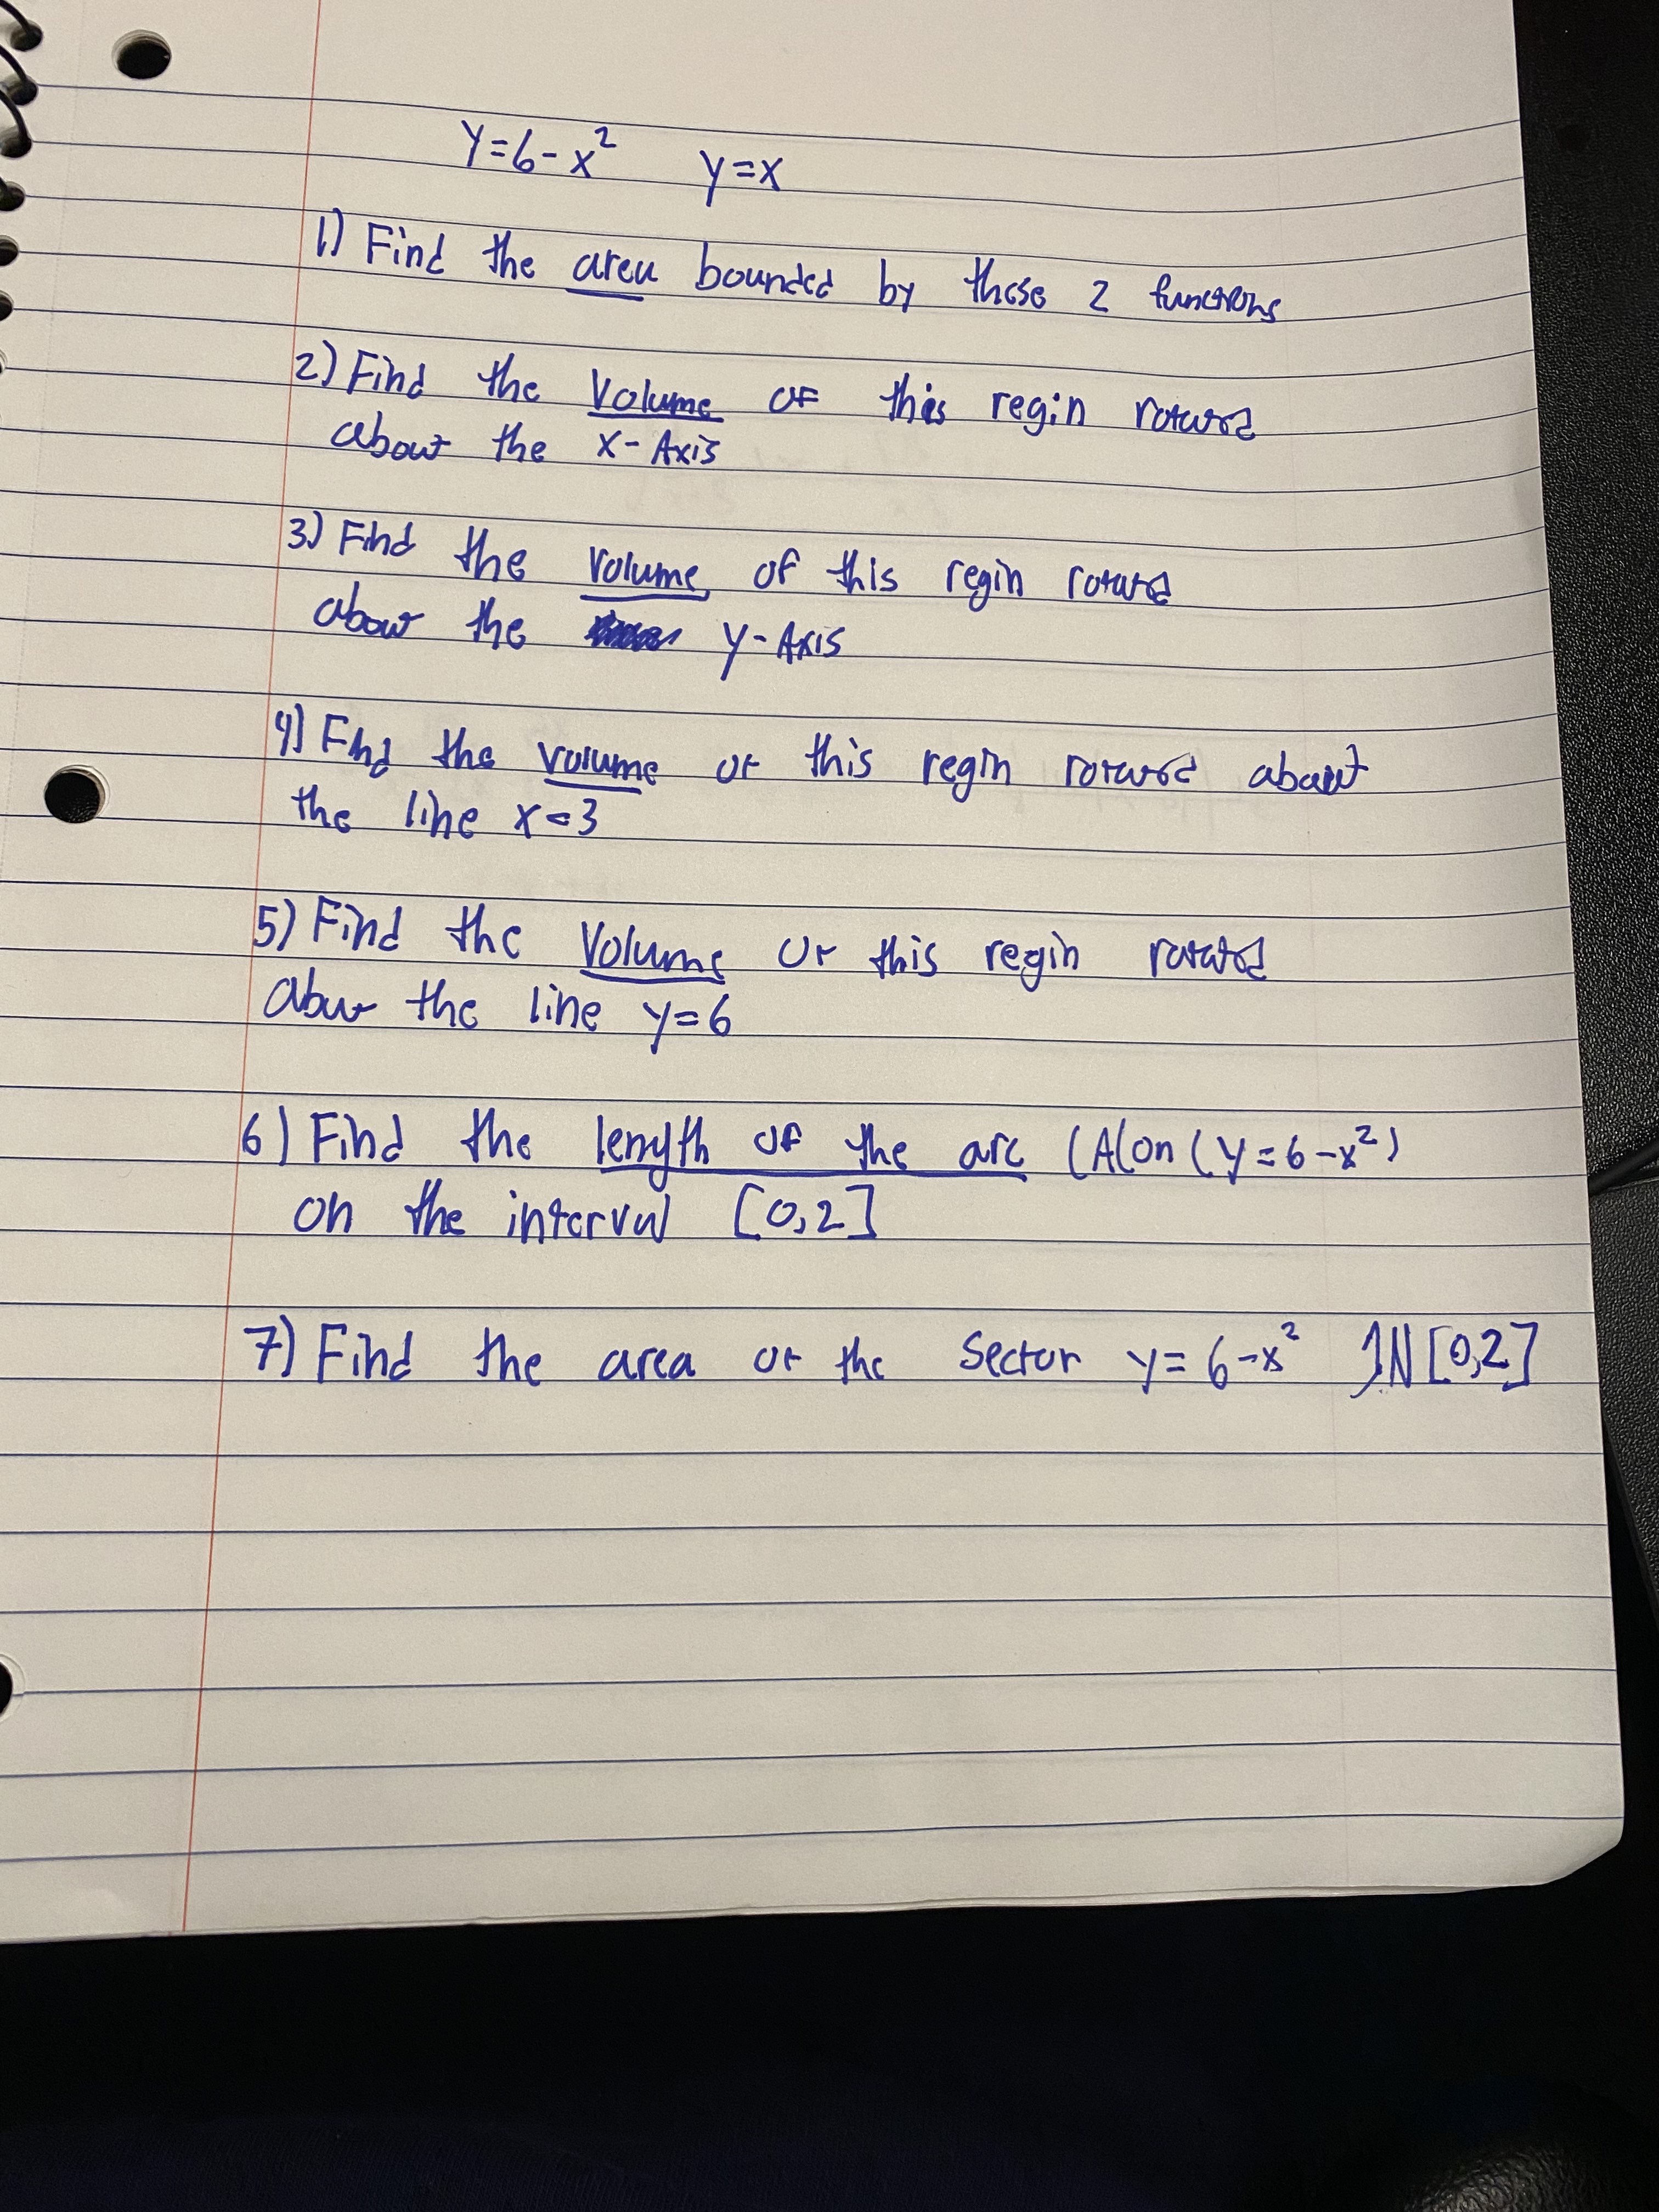 y=6-x² y=x
1) Find the area bounded by these 2 functions
2) Find the Volume of this regin rotated
about the x-Axis
3) Find the Volume of this regin rotated
about the y-Axis
4) Find the volume of this regin rotated about
the line x=3
5) Find the Volume of this regin rotated
about the line y=6
6) Find the length of the arc (Alon( y=6-x²)
on the interval [0,2]
7) Find the area of the Sector y=6-x² IN [0,2]